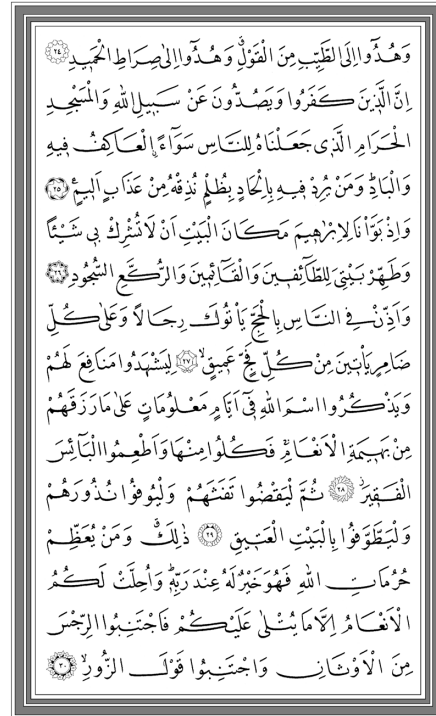 وَهُدُٓوا اِلَى الطَّيِّبِ مِنَ الْقَوْلِۚ وَهُدُٓوا اِلٰى صِرَاطِ الْحَمٖيدِ ﴿٢٤﴾
اِنَّ الَّذٖينَ كَفَرُوا وَيَصُدُّونَ عَنْ سَبٖيلِ اللّٰهِ وَالْمَسْجِدِ
الْحَرَامِ الَّذٖى جَعَلْنَاهُ لِلنَّاسِ سَوَٓاءًۨ الْعَاكِفُ فٖيهِ
وَالْبَادِؕ وَمَنْ يُرِدْ فٖيهِ بِاِلْحَادٍ بِظُلْمٍ نُذِقْهُ مِنْ عَذَابٍ اَلٖيمٍؑ ﴿٢٥﴾
وَاِذْ بَوَّأْنَا لِاِبْرٰهٖيمَ مَكَانَ الْبَيْتِ اَنْ لَا تُشْرِكْ بٖى شَيْـًٔا
وَطَهِّرْ بَيْتِىَ لِلطَّٓائِفٖينَ وَالْقَٓائِمٖينَ وَالرُّكَّعِ السُّجُودِ ﴿٢٦﴾
وَاَذِّنْ فِى النَّاسِ بِالْحَجِّ يَأْتُوكَ رِجَالًا وَعَلٰى كُلِّ
ضَامِرٍ يَأْتٖينَ مِنْ كُلِّ فَجٍّ عَمٖيقٍۙ ﴿٢٧﴾ لِيَشْهَدُوا مَنَافِعَ لَهُمْ
وَيَذْكُرُوا اسْمَ اللّٰهِ فٖٓى اَيَّامٍ مَعْلُومَاتٍ عَلٰى مَا رَزَقَهُمْ
مِنْ بَهٖيمَةِ الْاَنْعَامِۚ فَكُلُوا مِنْهَا وَاَطْعِمُوا الْبَٓائِسَ
الْفَقٖيرَؗ ﴿٢٨﴾ ثُمَّ لْيَقْضُوا تَفَثَهُمْ وَلْيُوفُوا نُذُورَهُمْ
وَلْيَطَّوَّفُوا بِالْبَيْتِ الْعَتٖيقِ ﴿٢٩﴾ ذٰلِكَۗ وَمَنْ يُعَظِّمْ
حُرُمَاتِ اللّٰهِ فَهُوَ خَيْرٌ لَهُ عِنْدَ رَبِّهٖؕ وَاُحِلَّتْ لَكُمُ
الْاَنْعَامُ اِلَّا مَا يُتْلٰى عَلَيْكُمْ فَاجْتَنِبُوا الرِّجْسَ
مِنَ الْاَوْثَانِ وَاجْتَنِبُوا قَوْلَ الزُّورِۙ ﴿٣٠﴾